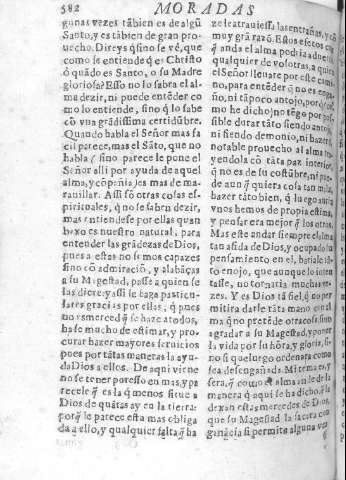 582 MORADAS
gunas vezes tãbien es de algũ
Santo, y es tãbien de gran pro-
uecho. Direys q̃ si no se vè, que
como se entiende q̃ es Christo
ò quãdo es Santo, o su Madre
gloriosa? Esso no lo sabra el al-
ma dezir, ni puede entẽder co-
mo lo entiende, sino q̃ lo sabe
cõ vna grãdissima certidũbre.
Quando habla el Señor mas fa
cil parece, mas el Sãto, que no
habla (sino parece le pone el
Señor alli por ayuda de aquel
alma, y cõpañia) es mas de ma-
rauillar. Assi sõ otras cosas es-
pirituales, q̃ no se sabẽ dezir,
mas entiendese por ellas quan
baxo es nuestro natural, para
entender las grãdezas de Dios,
pues a estas no somos capazes
sino cõ admiraciõ, y alabãças
a su Magestad, passe a quien se
las diere: y assi le haga particu-
lares gracias por ellas, q̃ pues
no es merced q̃ se haze a todos,
ha se mucho de estimar, y pro-
curar hazer mayores seruicios
pues por tãtas maneras la ayu-
da Dios a ellos. De aqui viene
no se tener por esso en mas, y pa
recele q̃ es la q̃ menos sirue a
Dios de quãtas ay en la tierra:
porq̃ le parece esta mas obliga
da a ello, y qualquier falta q̃ ha
ze le atrauiessa las entrañas, y cõ
muy grã razõ. Estos efectos cõ
q̃ anda el alma podrà aduertir
qualquier de vosotras, a quien
el Señor lleuare por este cami-
no, para entẽder q̃ no es enga-
ño, ni tãpoco antojo, porq̃ (co-
mo he dicho) no tẽgo por pos-
sible durar tãto siendo antojo,
ni siendo demonio, ni hazer tã
notable prouecho al alma, tra-
yendola cõ tãta paz interior,
q̃ no es de su costũbre, ni pue-
de aunq̃ quiera cosa tan mala
hazer tãto bien, q̃ luego auria
vnos hemos de propia estima,
y pensar era mejor q̃ los otros.
Mas este andar siempre el alma
tan asida de Dios, y ocupado su
pensamiento en el, hariale tã-
to enojo, que aunque lo inten
tasse, no tornaria muchas ve-
zes. Y es Dios tã fiel, q̃ no per
mitira darle tãta mano en al
ma q̃ no pretẽde otra cosa sino
agradar a su Magestad, y poner
la vida por su hõra, y gloria, si-
no q̃ luego ordenara como
sea desengañada. Mi tema es, y
sera, q̃ como el alma ande de la
manera q̃ aqui se ha dicho, la
dexan estas mercedes de Dios,
que su Magestad la sacara con
ganãcia si permite alguna vez